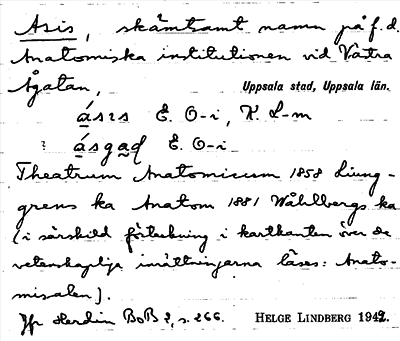 Asis, skämtsamt namn på f.d.
Anatomiska institutionen vid Västra
Ågatan, Uppsala stad, Uppsala län.
ásıs E. O-i, K. L-m
: ásgad E. O-i
Theatrum Anatomicum 1858 Ljung-
grens ka Anatom 1881 Wåhlbergs ka
(i särskild förteckning i kartkanten över de
vetenskaplija inrättningarna läses: Anato-
misalen).
Jfr Herdin BoB 2, s. 266. HELGE LINDBERG 1942.